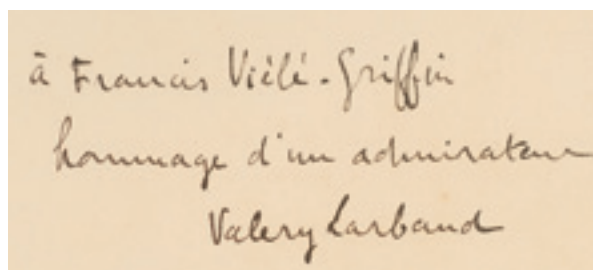 à Francis Viélé-Griffin
hommage d'un admirateur
Valery Larbaud